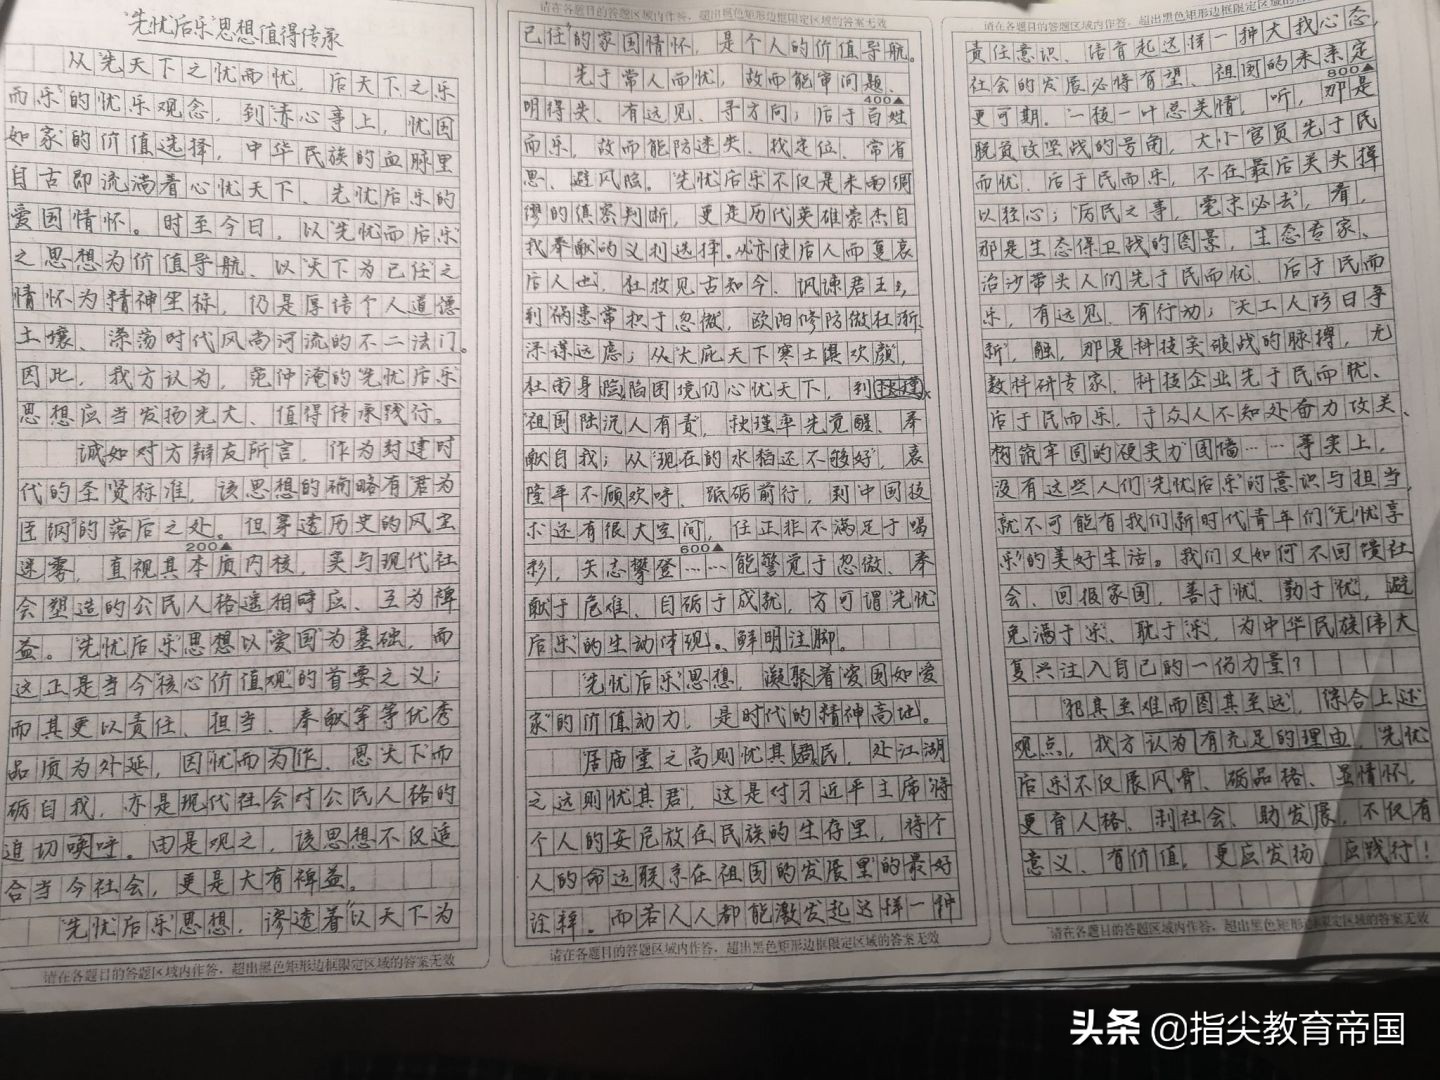 “先忧后乐”思想值得传承
从“先天下之忧而忧，后天下之乐
而乐”的忧乐观念，到“赤心事上，忧国
如家”的价值选择，中华民族的血脉里
自古即流淌着心忧天下、先忧后乐的
爱国情怀。时至今日，以“先忧而后乐”
之思想为价值导航、以“天下为己任”之
情怀为精神坐标，仍是厚培个人道德
土壤、涤荡时代风尚河流的不二法门。
因此，我方认为，范仲淹的“先忧后乐”
思想应当发扬光大、值得传承践行。
诚如对方辩友所言，作为封建时
代的圣贤标准，该思想的确略有“君为
臣纲”的落后之处。但穿透历史的风尘
200▲
迷雾，直视其本质内核，实与现代社
会塑造的公民人格遥相呼应、互为裨
益。“先忧后乐”思想以“爱国”为基础，而
这正是当今核心价值观”的首要之义；
而其更以责任、担当、奉献等等优秀
品质为外延，因忧而为作、思天下而
砺自我，亦是现代社会对公民人格的
迫切唤呼。由是观之，该思想不仅适
合当今社会，更是大有裨益。
“先忧后乐”思想，渗透着“以天下为
请在各题目的答题区域内作答，超出黑色矩形边框限定区域的答案无效
请在各题目的答题区域内作答，超出黑色矩形边框限定区域的答案无效
己任”的家国情怀，是个人的价值导航。
先于常人而忧，故而能审问题、
400▲
明得失、有远见、寻方向；后于百姓
而乐，故而能防迷失、找定位、常省
思、避风险。“先忧后乐”不仅是未雨绸
缪的缜密判断，更是历代英雄豪杰自
我奉献的义利选择。从“亦使后人而复哀
后人也”，杜牧见古知今、讽谏君王，
到“祸患常积于忽微”，欧阳修防微杜渐、
深谋远虑；从“大庇天下寒士俱欢颜”，
杜甫身陷困境仍心忧天下，到
“祖国陆沉人有责”，秋瑾率先觉醒、奉
献自我；从“现在的水稻还不够好”，袁
隆平不顾欢呼、砥砺前行，到“中国技
术还有很大空间”，任正非不满足于喝
600▲
彩，矢志攀登……能警觉于忽微、奉
献于危难、自砺于成就，方可谓“先忧
后乐”的生动体现、鲜明注脚。
“先忧后乐”思想，凝聚着“爱国如爱
家”的价值动力，是时代的精神高地。
“居庙堂之高则忧其民，处江湖
之远则忧其君”，这是对习近平主席“将
个人的安危放在民族的生存里，将个
人的命运联系在祖国的发展里”的最好
诠释。而若人人都能激发起这样一种
请在各题目的答题区域内作答，超出黑色矩形边框限定区域的答案无效
请在各题目的答题区域内作答，超出黑色矩形边框限定区域的答案无效
责任意识、培育起这样一种大我心态，
社会的发展必将有望、祖国的未来定
800▲
更可期。“一枝一叶总关情”，听，那是
脱贫攻坚战的号角，大小官员先于民
而忧、后于民而乐，不在最后关头掉
以轻心；“厉民之事，毫末必去”，看，
那是生态保卫战的图景，生态专家、
治沙带头人们先于民而忧、后于民而
乐，有远见、有行动；“天工人巧日争
新”，触，那是科技突破战的脉搏，无
数科研专家、科技企业先于民而忧、
后于民而乐，于众人不知处奋力攻关、
构筑牢固的“硬实力”围墙……事实上，
没有这些人们“先忧后乐”的意识与担当，
就不可能有我们新时代青年们“无忧享
乐”的美好生活。我们又如何不回馈社
会、回报家国，善于忧、勤于忧，避
免满于乐、耽于乐，为中华民族伟大
复兴注入自己的一份力量？
“犯其至难而图其至远”，综合上述
观点，我方认为有充足的理由，“先忧
后乐”不仅展风骨、砺品格、显情怀，
更育人格、利社会、助发展，不仅有
意义、有价值，更应发扬、应践行！
请在各题目的答题区域内作答，超出黑色矩形边框限定区域的答案无效
头条 @指尖教育帝国